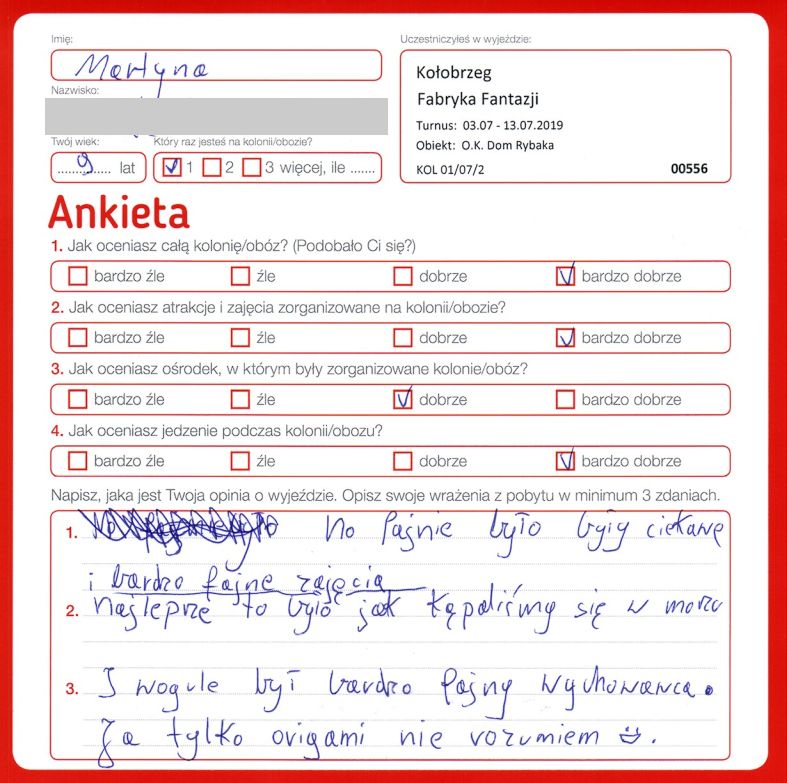 Imię:
Martyna
Nazwisko:
Twój wiek:
Który raz jesteś na kolonii/obozie?
9 lat
1 2 3 więcej, ile .......
Uczestniczyłeś w wyjeździe:
Kołobrzeg
Fabryka Fantazji
Turnus: 03.07 - 13.07.2019
Obiekt: O.K. Dom Rybaka
KOL 01/07/2 00556
Ankieta
1. Jak oceniasz całą kolonię/obóz? (Podobało Ci się?)
bardzo źle źle dobrze bardzo dobrze
2. Jak oceniasz atrakcje i zajęcia zorganizowane na kolonii/obozie?
bardzo źle źle dobrze bardzo dobrze
3. Jak oceniasz ośrodek, w którym były zorganizowane kolonie/obóz?
bardzo źle źle dobrze bardzo dobrze
4. Jak oceniasz jedzenie podczas kolonii/obozu?
bardzo źle źle dobrze bardzo dobrze
Napisz, jaka jest Twoja opinia o wyjeździe. Opisz swoje wrażenia z pobytu w minimum 3 zdaniach.
1. No fajnie było były ciekawe
i bardzo fajne zajęcia
2. najleprze to było jak kąpaliśmy się w morzu
3. I wogule był bardzo fajny wychowawca.
Ja tylko origami nie rozumiem